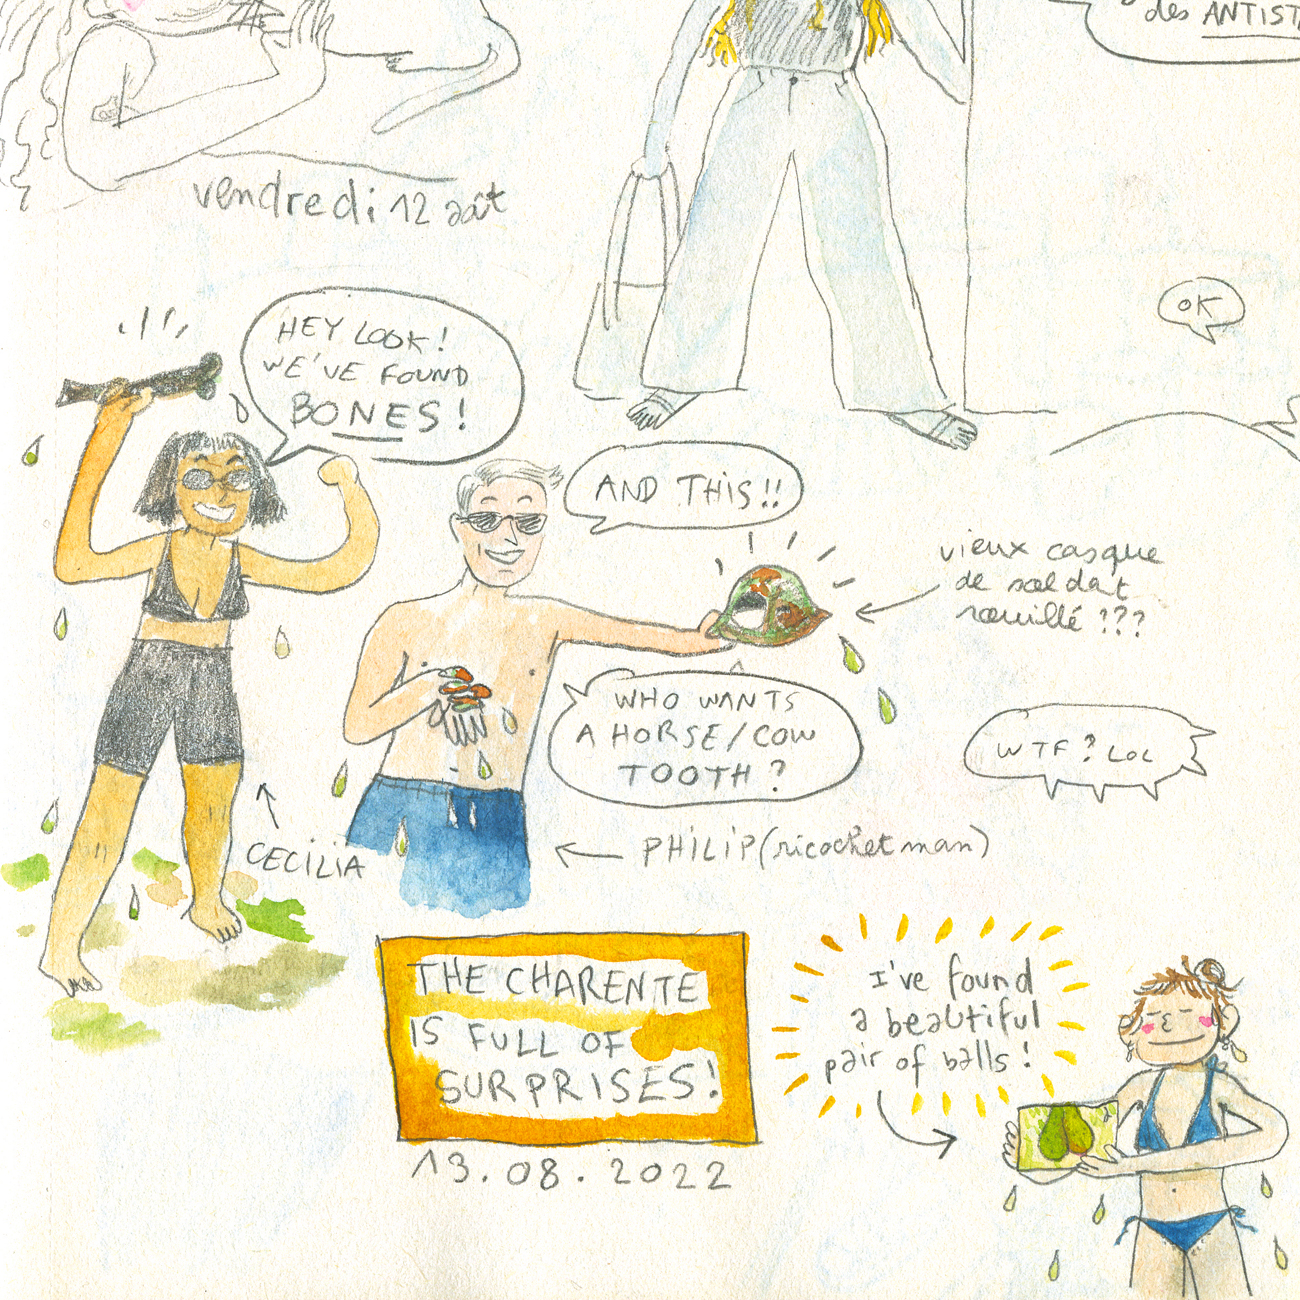 des ANTIST
vendredi 12 août
OK
HEY LOOK!
WE'VE FOUND
BONES!
AND THIS!!
vieux casque
de soldat
rouillé ???
WHO WANTS
A HORSE/COW
TOOTH?
WTF? LOL
CECILIA
PHILIP (ricochet man)
THE CHARENTE
IS FULL OF
SURPRISES!
13.08.2022
I've found
a beautiful
pair of balls!